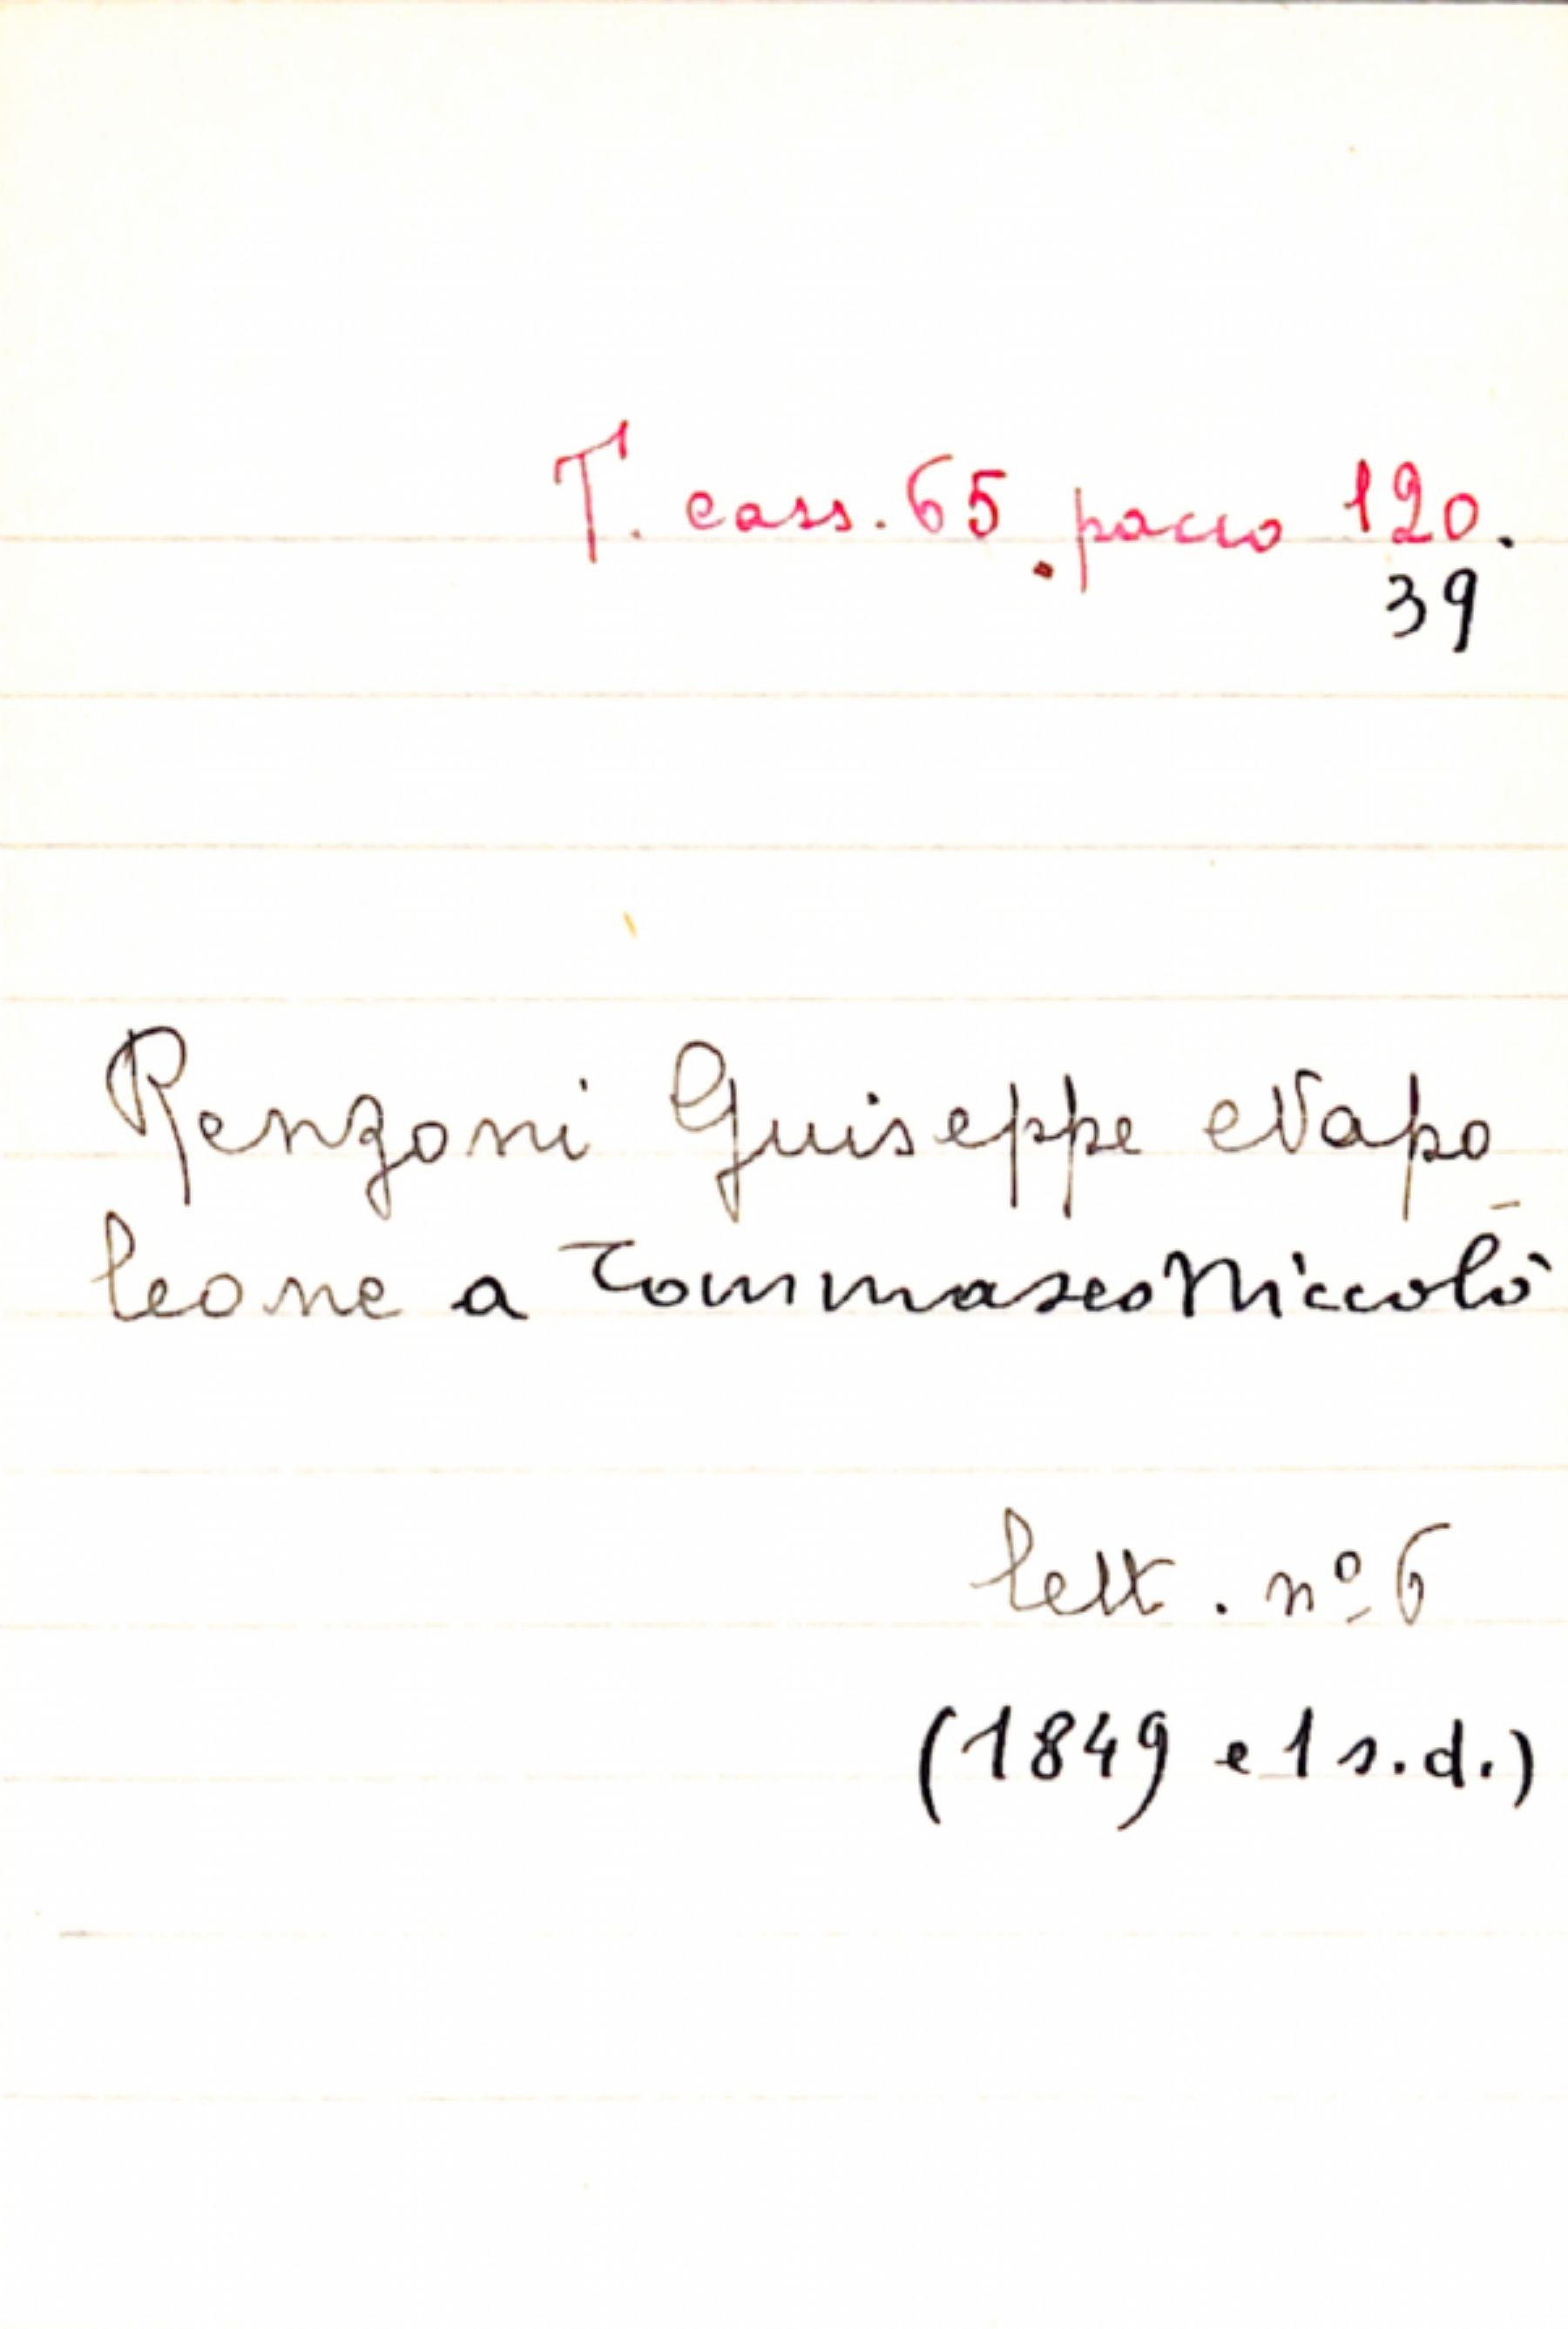 T. cass. 65. pacco 120.
39
Renzoni Giuseppe Napo-
leone a Tommaseo Niccolò
lett. nº 6
(1849 e 1 s.d.)